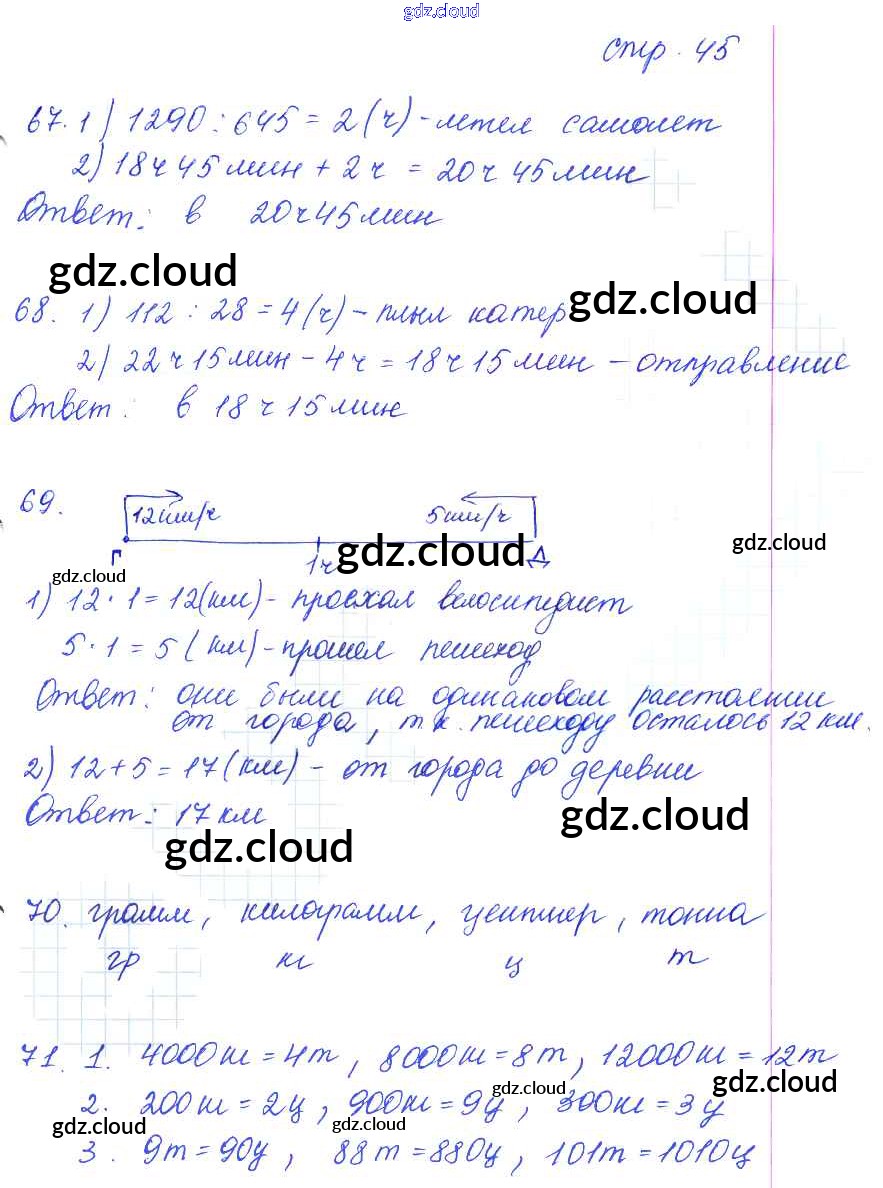 gdz.cloud
стр. 45
67. 1) 1290 : 645 = 2 (ч) - летел самолет
2) 18ч 45 мин + 2 ч = 20ч 45 мин
Ответ: в 20ч 45 мин
gdz.cloud
gdz.cloud
68. 1) 112 : 28 = 4 (ч) - плыл катер
2) 22 ч 15 мин - 4 ч = 18 ч 15 мин - отправление
Ответ: в 18 ч 15 мин
69.
12 км/ч 5 км/ч
Г 1ч gdz.cloud Д
gdz.cloud
gdz.cloud
1) 12 · 1 = 12 (км) - проехал велосипедист
5 · 1 = 5 (км) - прошел пешеход
Ответ: они были на одинаковом расстоянии
от города, т.к. пешеходу осталось 12 км.
2) 12 + 5 = 17 (км) - от города до деревни
Ответ: 17 км
gdz.cloud
gdz.cloud
70. грамм, килограмм, центнер, тонна
гр кг ц т
71. 1. 4000 кг = 4 т, 8000 кг = 8 т, 12000 кг = 12 т
gdz.cloud
gdz.cloud
2. 200 кг = 2 ц, 900 кг = 9 ц, 300 кг = 3 ц
gdz.cloud
gdz.cloud
3. 9 т = 90 ц, 88 т = 880 ц, 101 т = 1010 ц